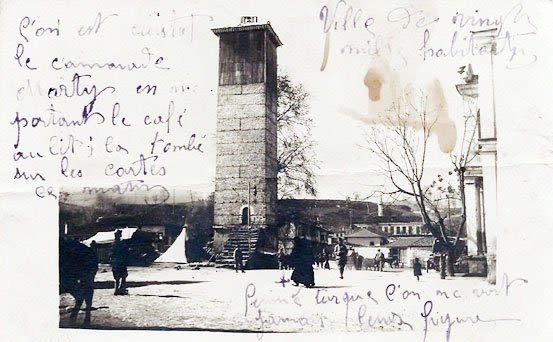 Ville de vingt
mille habitants
C'on est cuistot
le camarade
Marty en me
portant le café
au lit ; la tombé
sur les cartes
ce matin
turque l'on ne voit
jamais leurs figure